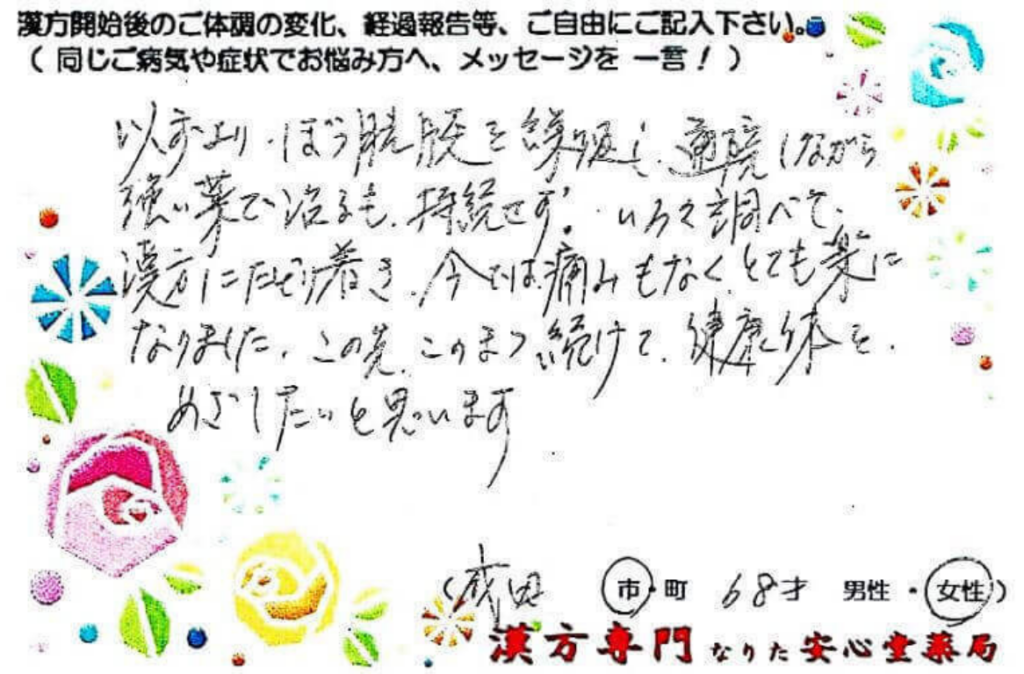 漢方開始後のご体調の変化、経過報告等、ご自由にご記入下さい。
（ 同じご病気や症状でお悩み方へ、メッセージを 一言！ ）
ぼう胱膜を繰返し、通院しながら
強い薬で治るも、持続せず。いろいろ調べて、
漢方にたどり着き、今では痛みもなく、とても楽に
なりました。この先、このまま続けて、健康体を、
めざしたいと思います
（成田 市・町 68才 男性・女性）
漢方専門 なりた 安心堂薬局